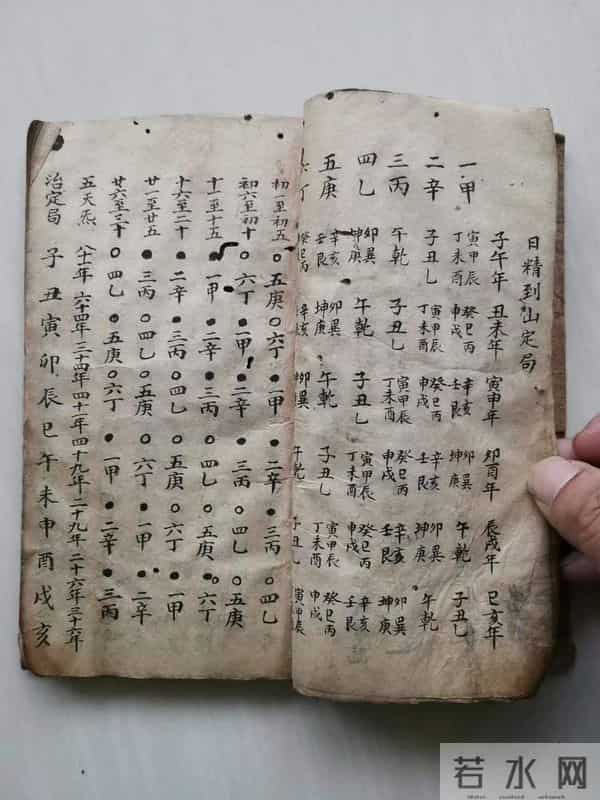 日精到山定局
子午年 丑未年 寅申年 卯酉年 辰戌年 巳亥年
一甲 寅甲辰丁未酉 癸巳丙申戌 辛亥壬艮 卯巽坤庚 午乾 子丑乙
二辛 子丑乙 寅甲辰丁未酉 癸巳丙申戌 辛亥壬艮 卯巽坤庚 午乾
三丙 午乾 子丑乙 寅甲辰丁未酉 癸巳丙申戌 辛亥壬艮 卯巽坤庚
四乙 卯巽坤庚 午乾 子丑乙 寅甲辰丁未酉 癸巳丙申戌 辛亥壬艮
五庚 辛亥壬艮 卯巽坤庚 午乾 子丑乙 寅甲辰丁未酉 癸巳丙申戌
六丁 癸巳丙 辛亥 卯巽 午乾 子丑乙 寅甲辰
初一至初五 五庚 六丁 一甲 二辛 三丙 四乙
初六至初十 六丁 一甲 二辛 三丙 四乙 五庚
十一至十五 一甲 二辛 三丙 四乙 五庚 六丁
十六至二十 二辛 三丙 四乙 五庚 六丁 一甲
廿一至廿五 三丙 四乙 五庚 六丁 一甲 二辛
廿六至三十 四乙 五庚 六丁 一甲 二辛 三丙
五天炁 八十一年 六十四年 三十四年 四十一年 四十九年 二十九年 二十六年 三十六年
治定局 子丑寅卯辰巳午未申酉戌亥
若水网